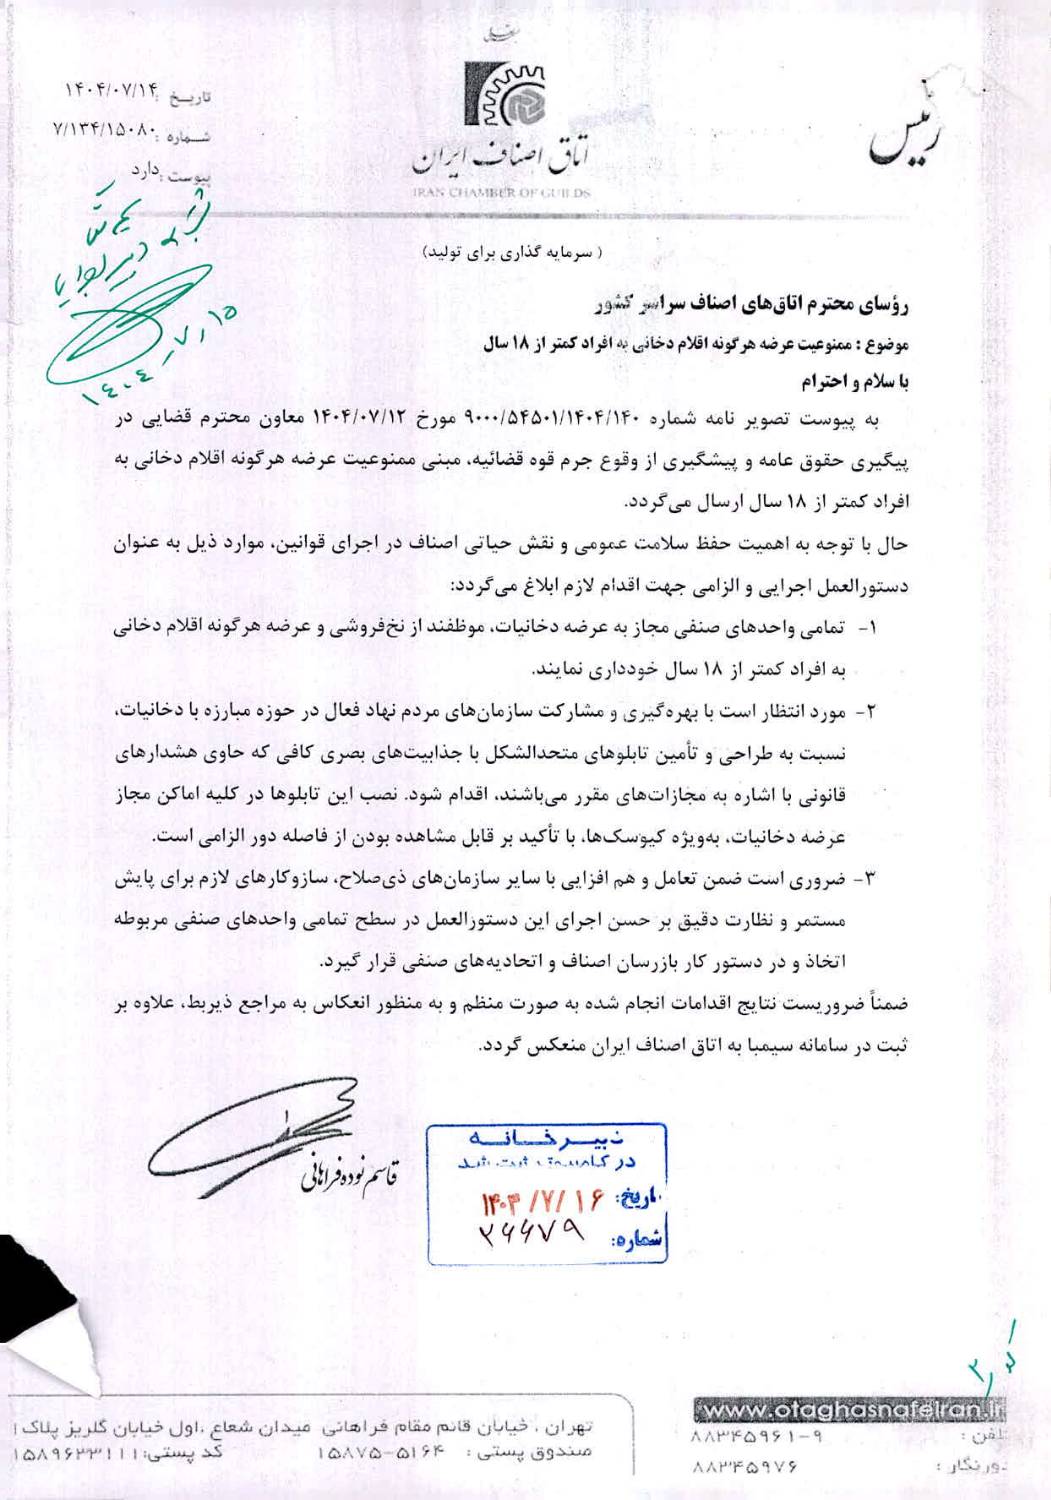 رئیس
اتاق اصناف ایران
IRAN CHAMBER OF GUILDS
تاریخ : ۱۴۰۴/۰۷/۱۴
شماره : ۷/۱۳۴/۱۵۰۸۰
پیوست : دارد
۱۴۰۴/۷/۱۵
( سرمایه گذاری برای تولید)
رؤسای محترم اتاق‌های اصناف سراسر کشور
موضوع : ممنوعیت عرضه هرگونه اقلام دخانی به افراد کمتر از ۱۸ سال
با سلام و احترام
به پیوست تصویر نامه شماره ۹۰۰۰/۵۴۵۰۱/۱۴۰۴/۱۴۰ مورخ ۱۴۰۴/۰۷/۱۲ معاون محترم قضایی در
پیگیری حقوق عامه و پیشگیری از وقوع جرم قوه قضائیه، مبنی ممنوعیت عرضه هرگونه اقلام دخانی به
افراد کمتر از ۱۸ سال ارسال می‌گردد.
حال با توجه به اهمیت حفظ سلامت عمومی و نقش حیاتی اصناف در اجرای قوانین، موارد ذیل به عنوان
دستورالعمل اجرایی و الزامی جهت اقدام لازم ابلاغ می‌گردد:
۱- تمامی واحدهای صنفی مجاز به عرضه دخانیات، موظفند از نخ‌فروشی و عرضه هرگونه اقلام دخانی
به افراد کمتر از ۱۸ سال خودداری نمایند.
۲- مورد انتظار است با بهره‌گیری و مشارکت سازمان‌های مردم نهاد فعال در حوزه مبارزه با دخانیات،
نسبت به طراحی و تأمین تابلوهای متحدالشکل با جذابیت‌های بصری کافی که حاوی هشدارهای
قانونی با اشاره به مجازات‌های مقرر می‌باشند، اقدام شود. نصب این تابلوها در کلیه اماکن مجاز
عرضه دخانیات، به‌ویژه کیوسک‌ها، با تأکید بر قابل مشاهده بودن از فاصله دور الزامی است.
۳- ضروری است ضمن تعامل و هم افزایی با سایر سازمان‌های ذی‌صلاح، سازوکارهای لازم برای پایش
مستمر و نظارت دقیق بر حسن اجرای این دستورالعمل در سطح تمامی واحدهای صنفی مربوطه
اتخاذ و در دستور کار بازرسان اصناف و اتحادیه‌های صنفی قرار گیرد.
ضمناً ضروریست نتایج اقدامات انجام شده به صورت منظم و به منظور انعکاس به مراجع ذیربط، علاوه بر
ثبت در سامانه سیمبا به اتاق اصناف ایران منعکس گردد.
قاسم نوده‌فراهانی
دبیرخانه
در کامپیوتر ثبت شد
تاریخ: ۱۴۰۴/۷/۱۶
شماره: ۲۶۶۷۹
www.otaghasnafeiran.ir
تلفن : ۸۸۳۴۵۹۶۱-۹
دورنگار : ۸۸۳۴۵۹۷۶
تهران ، خیابان قائم مقام فراهانی میدان شعاع ،اول خیابان گلریز پلاک ۱
صندوق پستی : ۱۵۸۷۵-۵۱۶۴ کد پستی:۱۵۸۹۶۳۳۱۱۱